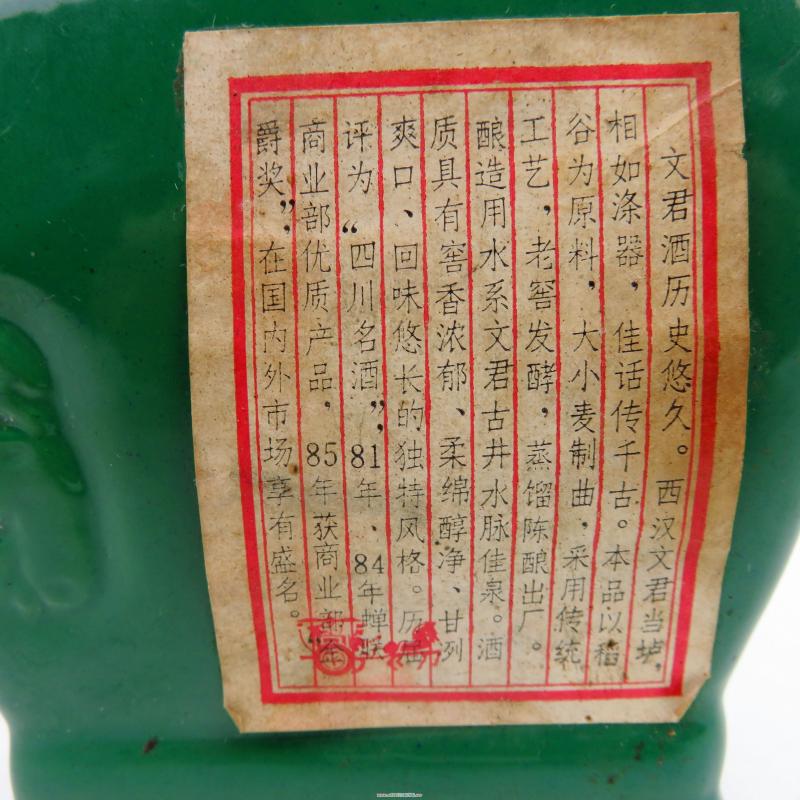 文君酒历史悠久。西汉文君当垆，
相如涤器，佳话传千古。本品以稻
谷为原料，大小麦制曲，采用传统
工艺，老窖发酵，蒸馏陈酿出厂。
酿造用水系文君古井水脉佳泉。酒
质具有窖香浓郁、柔绵醇净、甘洌
爽口、回味悠长的独特风格。历届
评为“四川名酒”，81年、84年蝉联
商业部优质产品，85年获商业部“金
爵奖”，在国内外市场享有盛名。